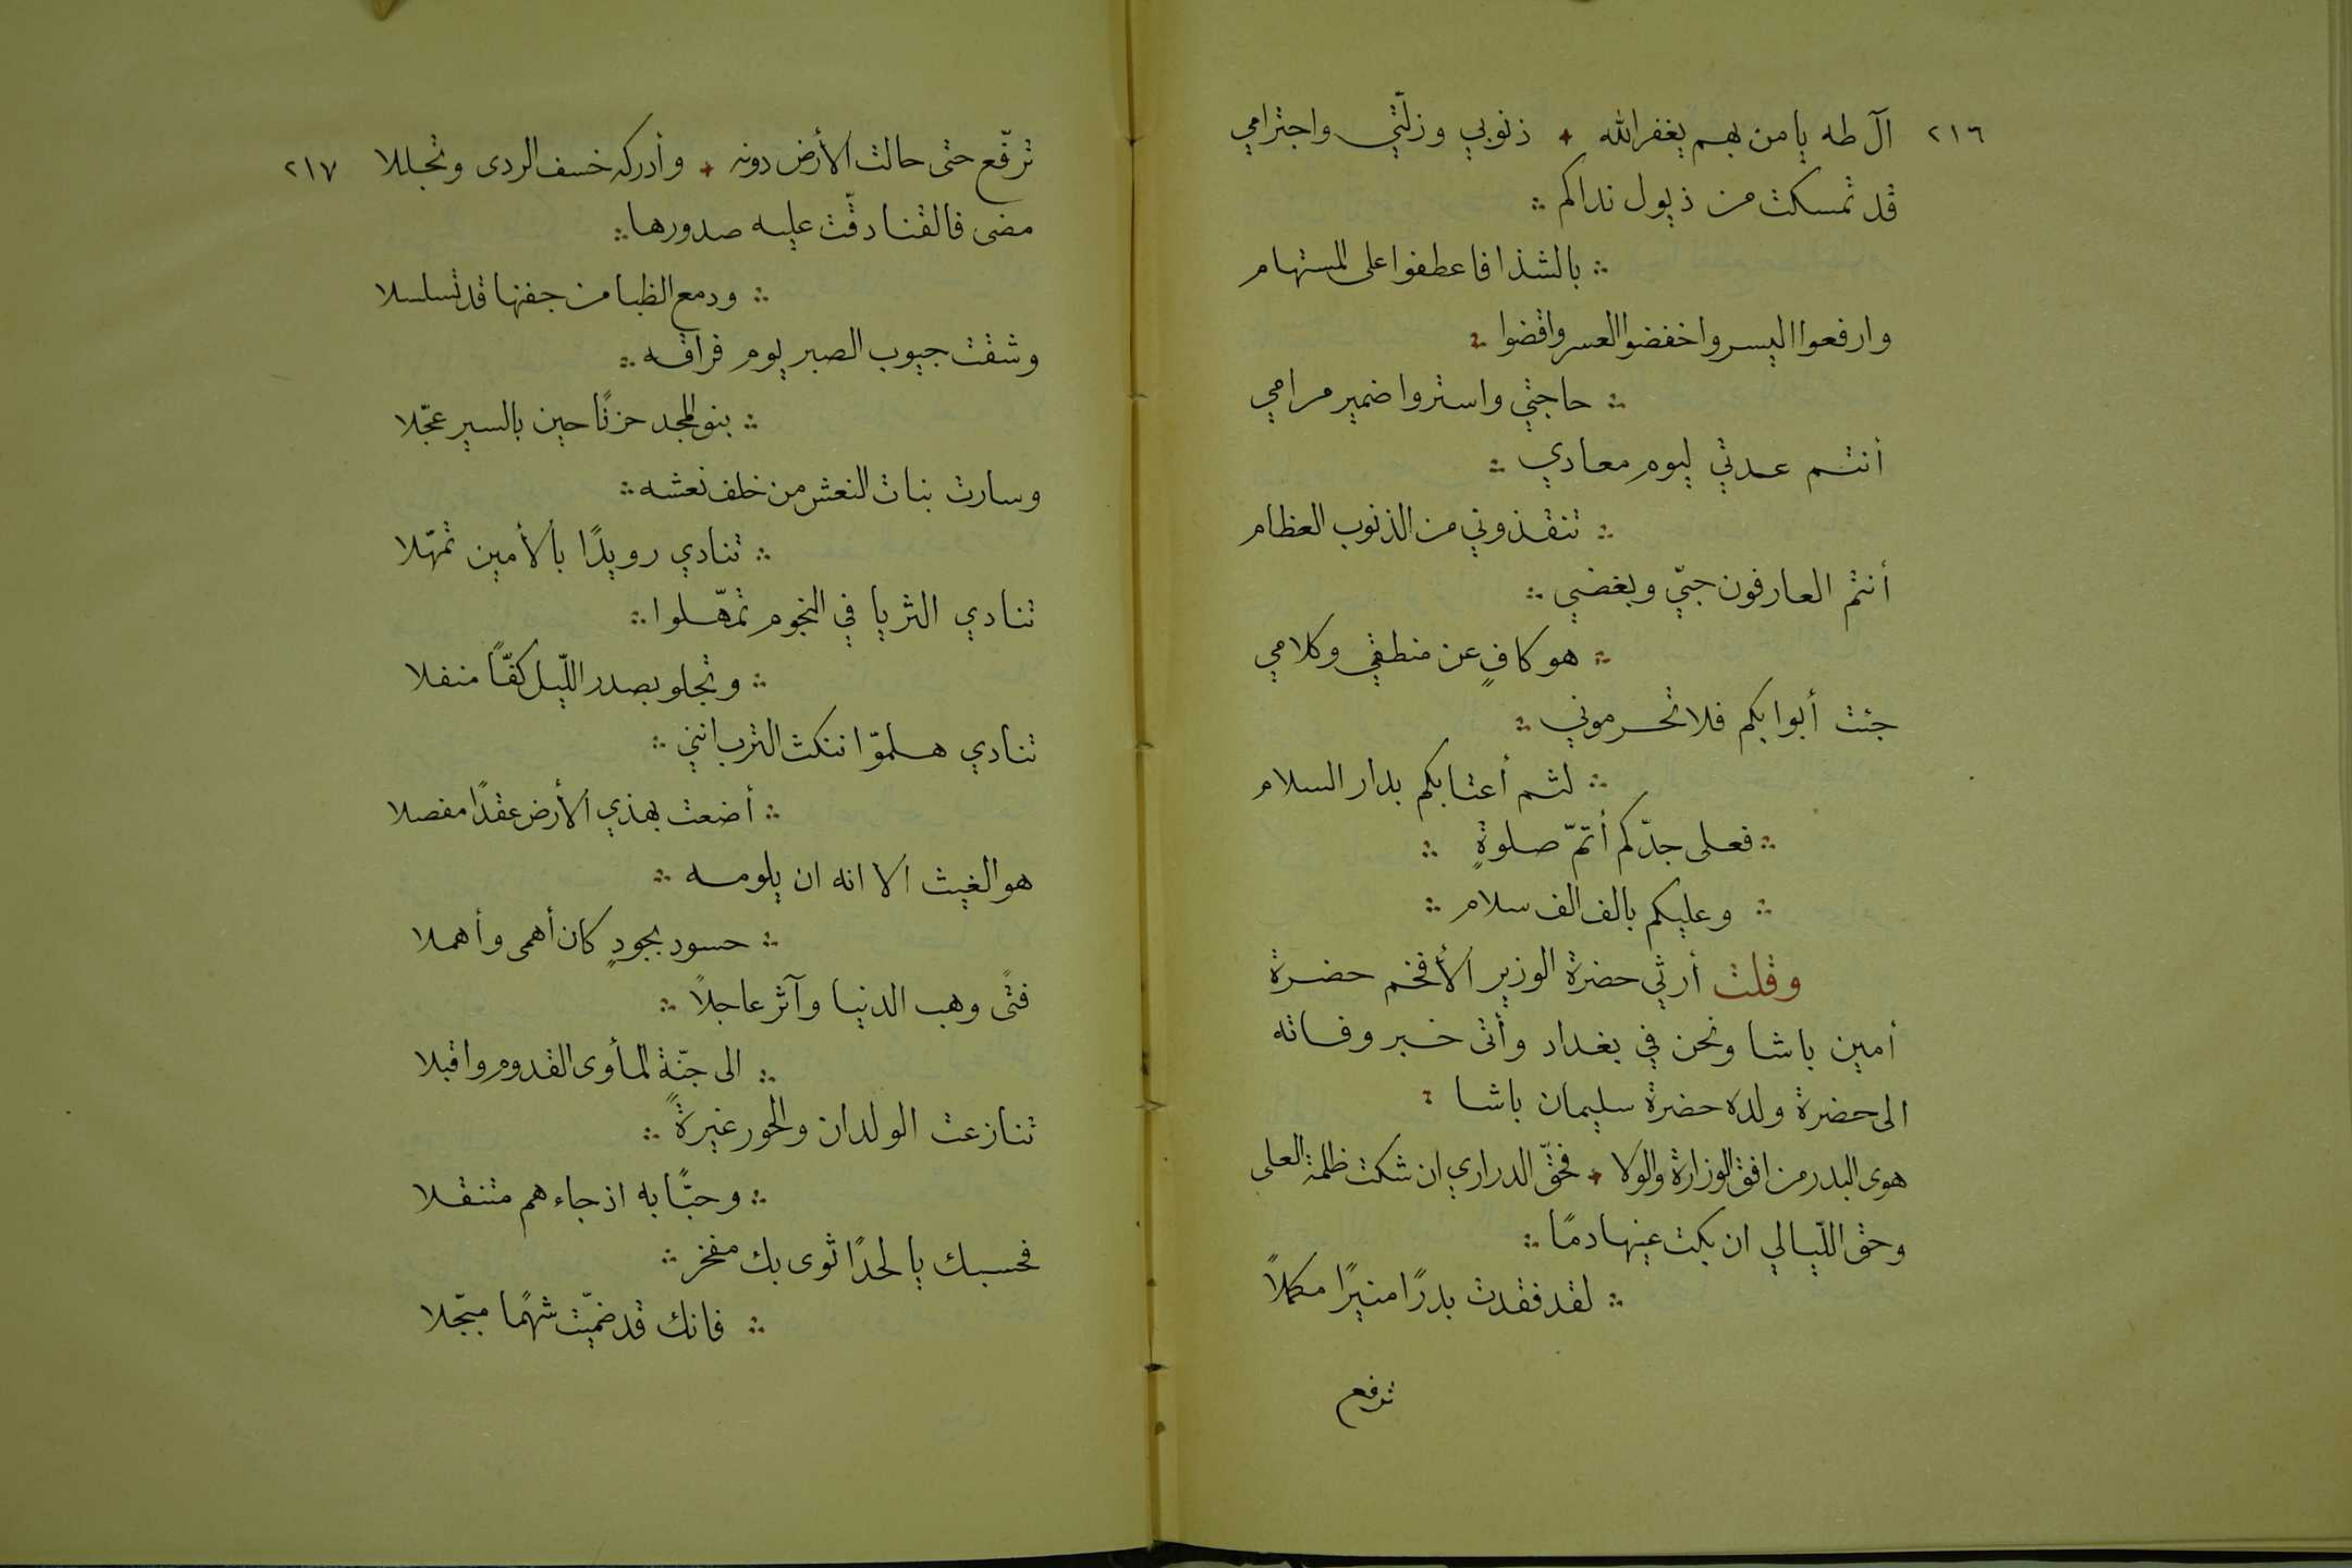 ٢١٦ آل طه يا من بهم يغفر الله ✦ ذنوبي وزلّتي واجترامي
قد تمسكت من ذيول نداكم ∴
∴ بالشذا فاعطفوا على المستهام
وارفعوا اليسر واخفضوا العسر واقضوا ∴
∴ حاجتي واستروا ضمير مرامي
أنتم عدتي ليوم معادي ∴
∴ تنقذوني من الذنوب العظام
أنتم العارفون حبّي وبغضي ∴
∴ هو كافٍ عن منطقي وكلامي
جئت أبوابكم فلا تحرموني ∴
∴ لثم أعتابكم بدار السلام
∴ فعلى جدّكم أتمّ صلوةٍ ∴
∴ وعليكم بالف الف سلام ∴
وقلت أرثي حضرة الوزير الأفخم حضرة
أمين باشا ونحن في بغداد وأتى خبر وفاته
الى حضرة ولده حضرة سليمان باشا ∴
هوى البدر من افق الوزارة والولا ✦ فحقّ الدراري ان شكت ظلمة العلى
وحق اللّيالي ان بكت عينها دمًا ∴
∴ لقد فقدت بدرًا منيرًا مكملاً
ترفع
ترفّع حتى حالت الأرض دونه ✦ وأدركه خسف الردى وتجللا ٢١٧
مضى فالقنا دقّت عليه صدورها ∴
∴ ودمع الظبا من جفنها قد تسلسلا
وشقت جيوب الصبر يوم فراقه ∴
∴ بنو المجد حزنًا حين بالسير عجّلا
وسارت بنات النعش من خلف نعشه ∴
∴ تنادي رويدًا بالأمين تمهّلا
تنادي الثريا في النجوم تمهّلوا ∴
∴ وتجلو بصدر اللّيل كفًّا منفلا
تنادي هلموّا ننكث الترب انني ∴
∴ أضعت بهذي الأرض عقدًا مفصلا
هو الغيث الا انه ان يلومه ∴
∴ حسود بجودٍ كان أهمى وأهملا
فتًى وهب الدنيا وآثر عاجلاً ∴
∴ الى جنّةِ المأوى القدوم واقبلا
تنازعت الولدان والحور غيرةً ∴
∴ وحبًّا به اذ جاءهم متنقلا
فحسبك يا لحدًا ثوى بك مفخر ∴
∴ فانك قد ضمّيت شهمًا مبجّلا